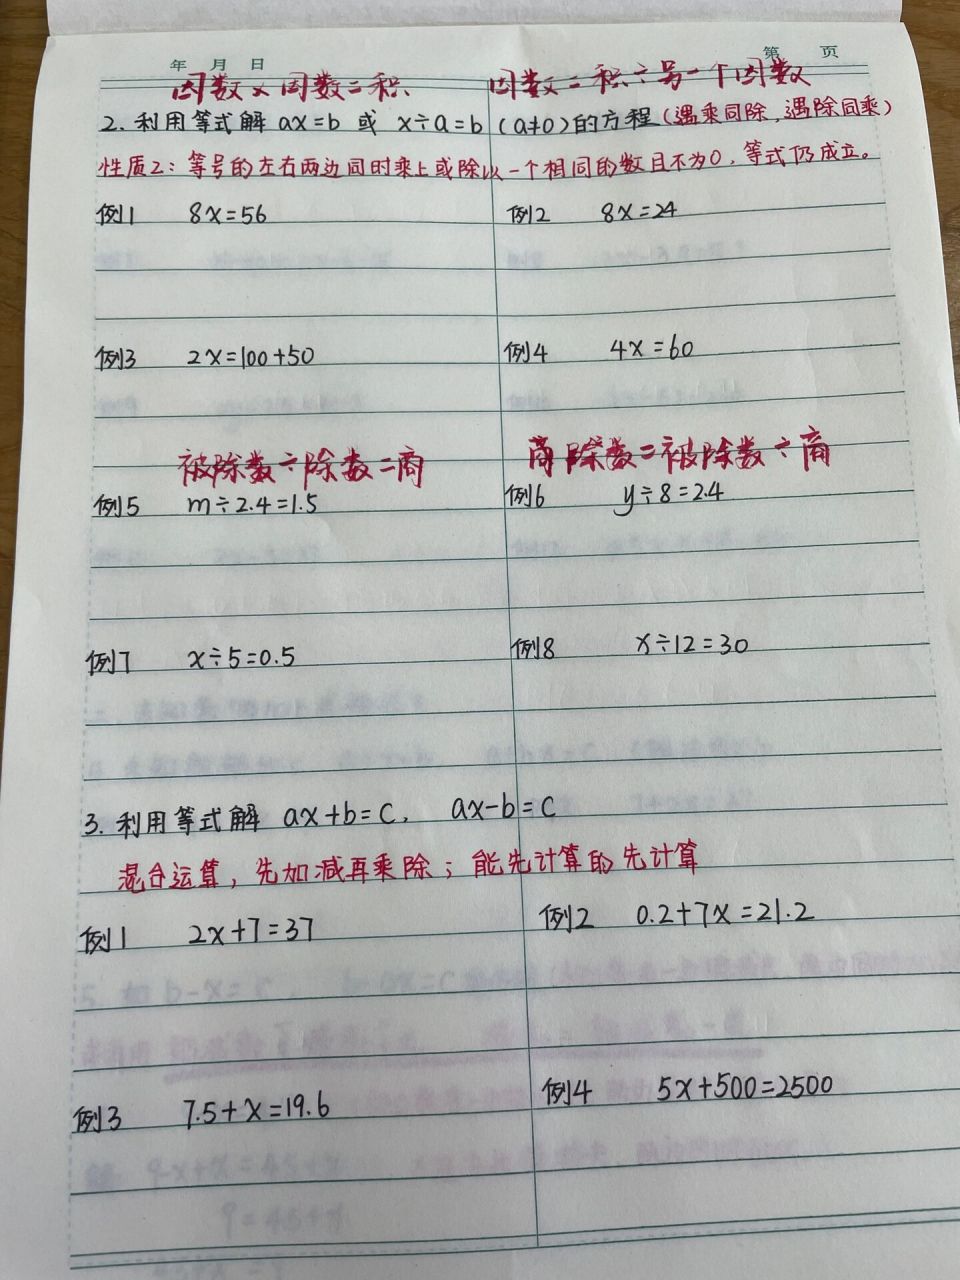 年 月 日 第 页
因数×因数=积 因数=积÷另一个因数
2. 利用等式解 ax=b 或 x÷a=b (a≠0)的方程(遇乘同除,遇除同乘)
性质2:等号的左右两边同时乘上或除以一个相同的数且不为0,等式仍成立。
例1 8x=56 例2 8x=24
例3 2x=100+50 例4 4x=60
被除数÷除数=商 商 除数=被除数÷商
例5 m÷2.4=1.5 例6 y÷8=2.4
例7 x÷5=0.5 例8 x÷12=30
3. 利用等式解 ax+b=c, ax-b=c
混合运算,先加减再乘除;能先计算的先计算
例1 2x+7=37 例2 0.2+7x=21.2
例3 7.5+x=19.6 例4 5x+500=2500